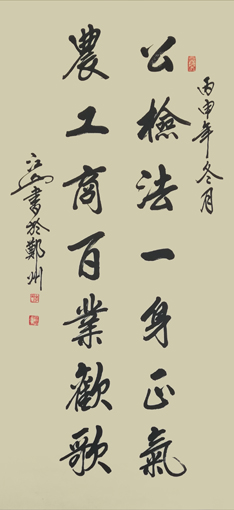 丙申年冬月
公檢法一身正氣
農工商百業歡歌
江山書於鄭州